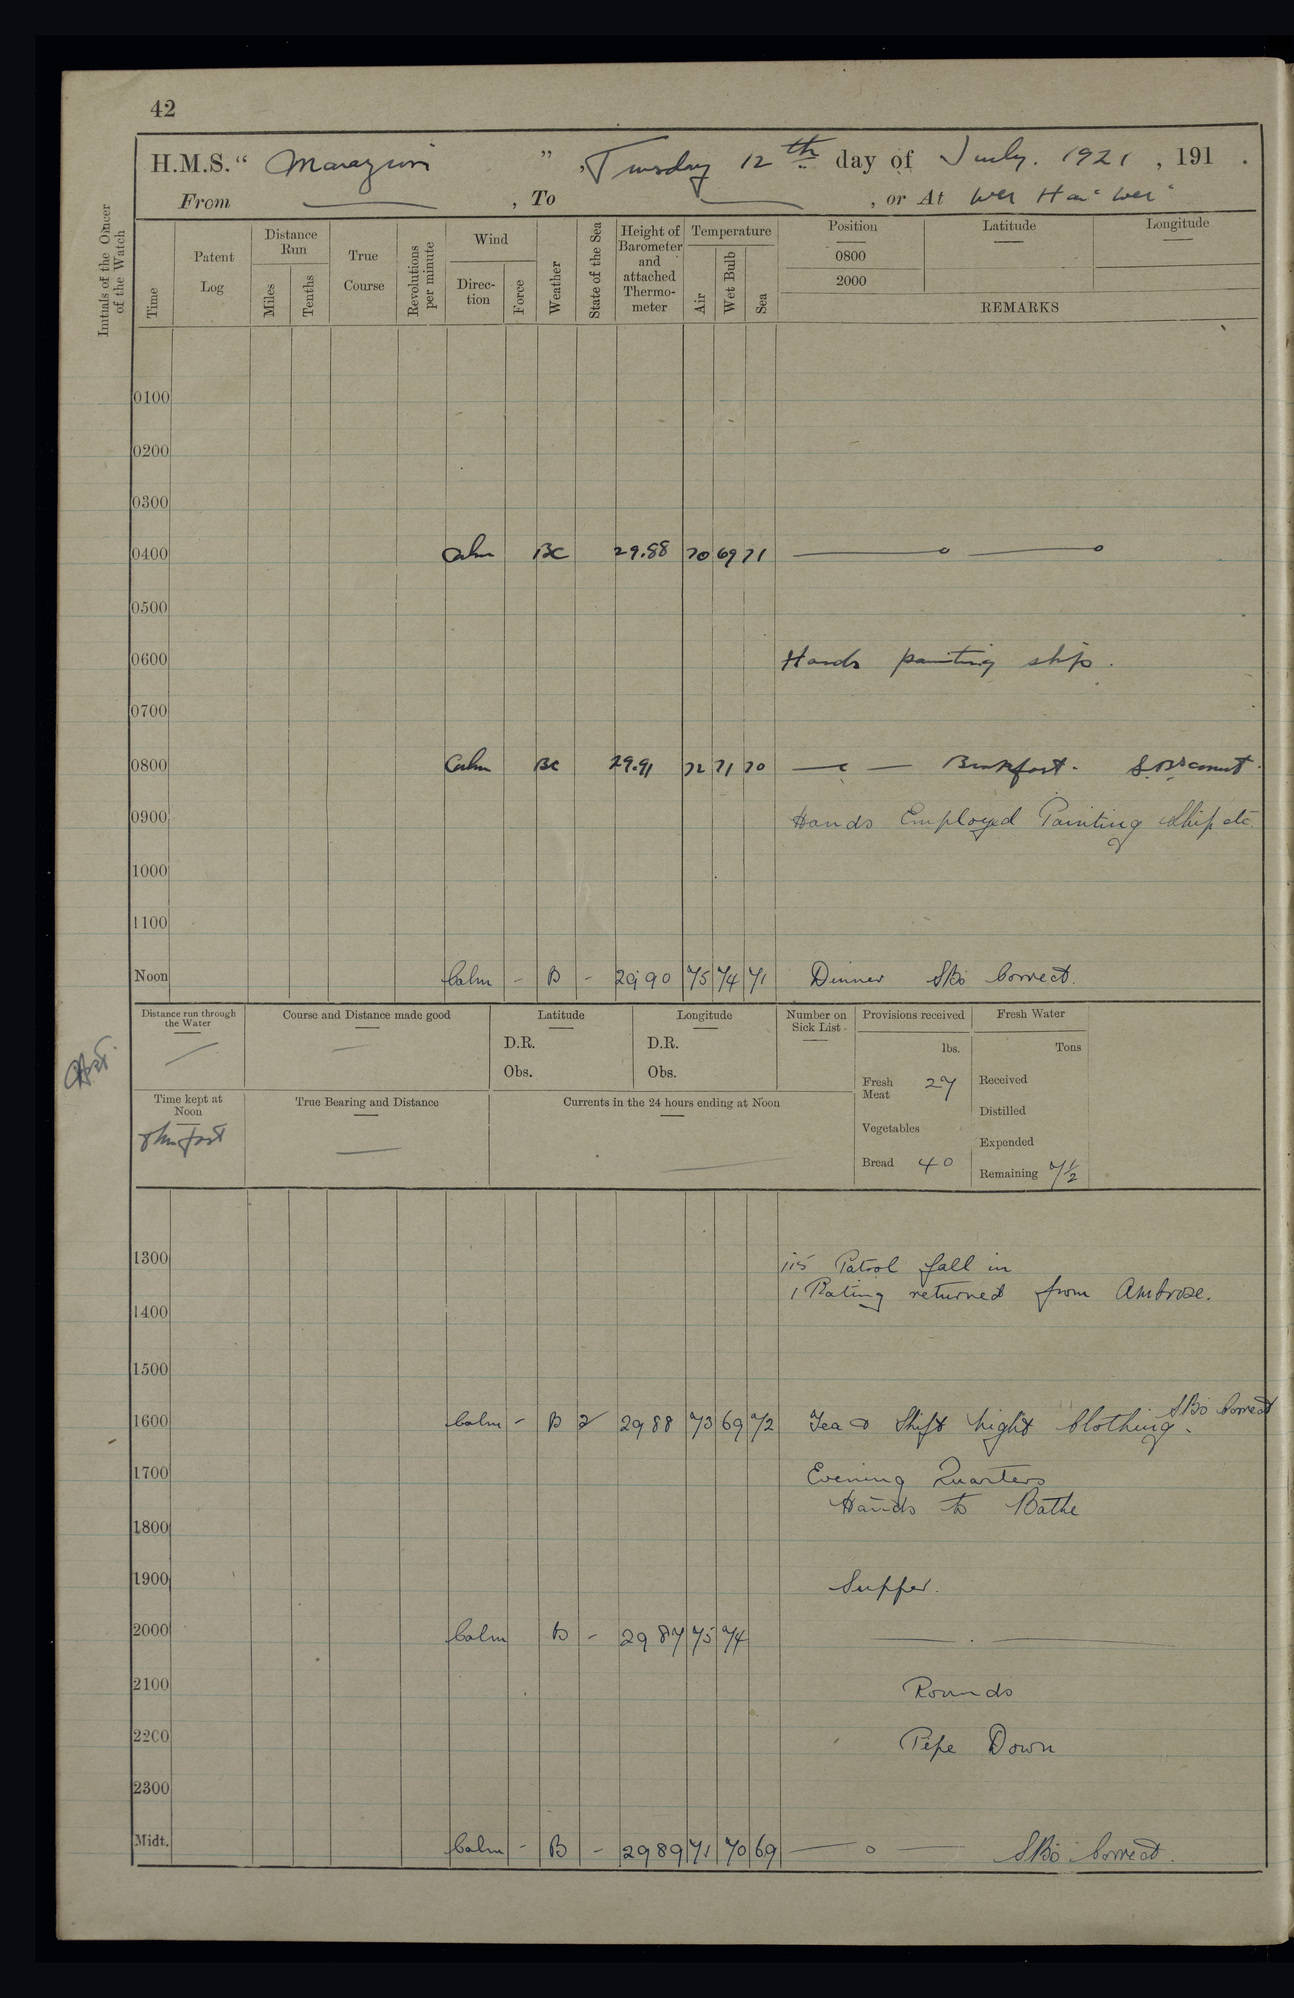 42
H.M.S. “ Marazion ” , Tuesday 12th day of July. 1921 , 191 .
From , To , or At Wei Hai Wei
Initials of the Officer of the Watch
Time
Patent Log
Distance Run
Miles
Tenths
True Course
Revolutions per minute
Wind
Direction
Force
Weather
State of the Sea
Height of Barometer and attached Thermometer
Temperature
Air
Wet Bulb
Sea
Position
Latitude
Longitude
0800
2000
REMARKS
0100
0200
0300
0400 Calm BC 29.88 70 69 71
0500
0600 Hands painting ship.
0700
0800 Calm BC 29.91 72 71 70 Breakfast. S.B's correct.
0900 Hands Employed Painting Ship etc.
1000
1100
Noon Calm - B - 29.90 75 74 71 Dinner SBs Correct.
Distance run through the Water
Course and Distance made good
Latitude
D.R.
Obs.
Longitude
D.R.
Obs.
Number on Sick List
Provisions received
lbs.
Fresh Meat 27
Vegetables
Bread 40
Fresh Water
Tons
Received
Distilled
Expended
Remaining 7½
Time kept at Noon
8hrs fast
True Bearing and Distance
Currents in the 24 hours ending at Noon
1300 115 Patrol fall in
1 Rating returned from Ambrose.
1400
1500
1600 Calm - B 2 2988 73 69 72 Tea & Shift Night Clothing. SBs Correct
1700 Evening Quarters
Hands to Bathe
1800
1900 Supper.
2000 Calm B - 2987 75 74
2100 Rounds
2200 Pipe Down
2300
Midt. Calm - B - 2989 71 70 69 SBs Correct.